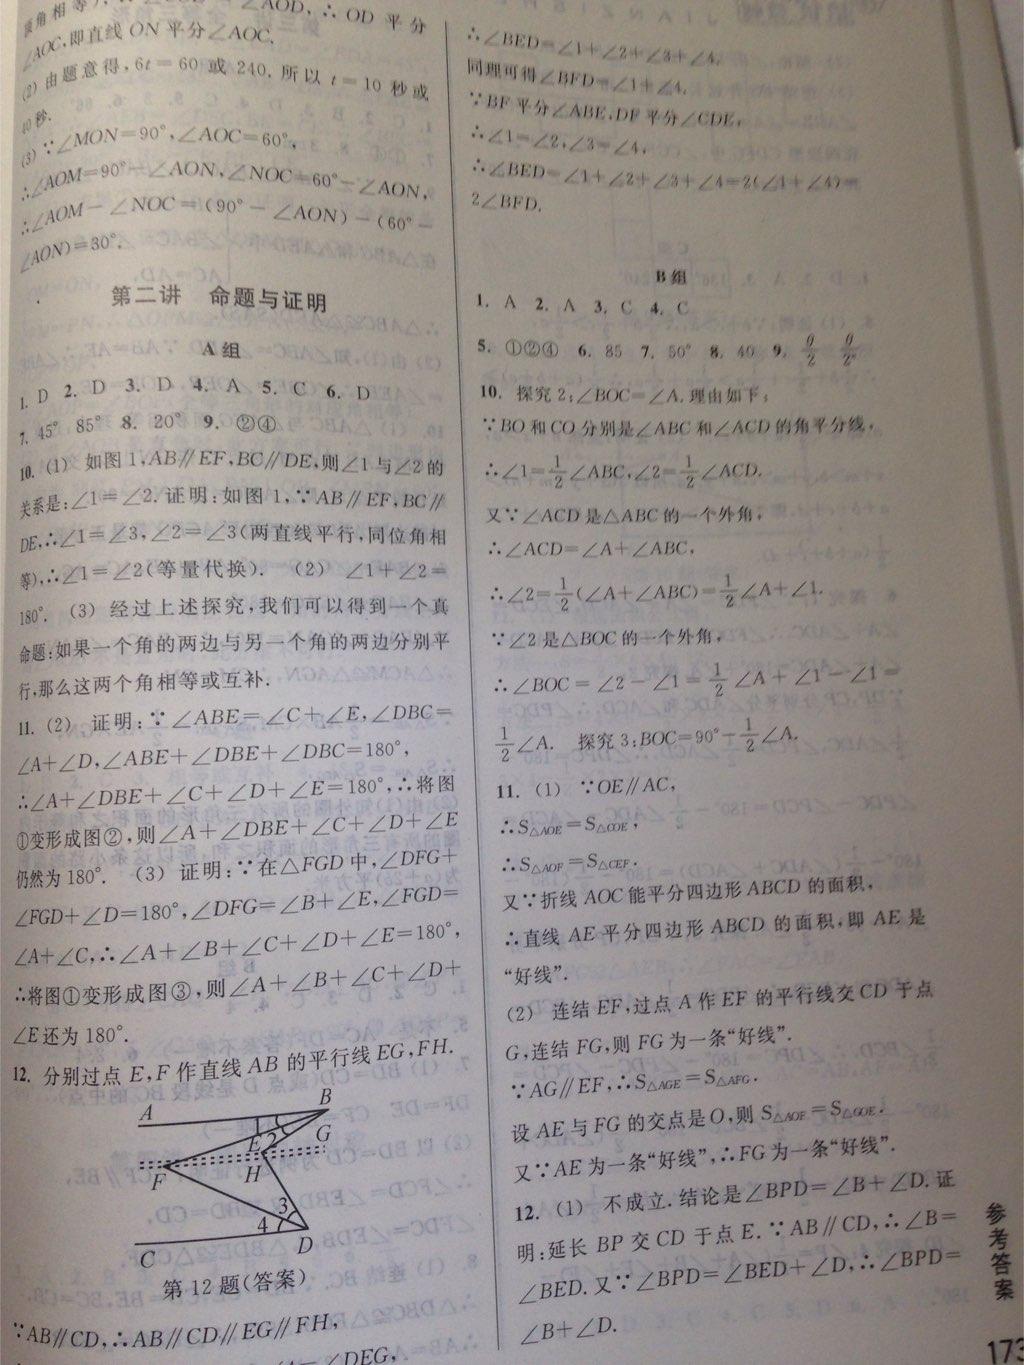 顶角相等).
∠AOD,∴OD 平分
∠AOC,即直线 ON 平分∠AOC.
(2) 由题意得,6t=60 或 240. 所以 t=10 秒或
40 秒.
(3) ∵∠MON=90°,∠AOC=60°,
∴∠AOM=90°-∠AON,∠NOC=60°-∠AON,
∴∠AOM-∠NOC=(90°-∠AON)-(60°-
∠AON)=30°.
第二讲 命题与证明
A 组
1. D 2. D 3. D 4. A 5. C 6. D
7. 45° 85° 8. 20° 9. ②④
10. (1) 如图 1,AB∥EF,BC∥DE,则∠1 与∠2 的
关系是:∠1=∠2. 证明:如图 1,∵AB∥EF,BC∥
DE,∴∠1=∠3,∠2=∠3(两直线平行,同位角相
等),∴∠1=∠2(等量代换). (2) ∠1+∠2=
180°. (3) 经过上述探究,我们可以得到一个真
命题:如果一个角的两边与另一个角的两边分别平
行,那么这两个角相等或互补.
11. (2) 证明:∵∠ABE=∠C+∠E,∠DBC=
∠A+∠D,∠ABE+∠DBE+∠DBC=180°,
∴∠A+∠DBE+∠C+∠D+∠E=180°,∴将图
①变形成图②,则∠A+∠DBE+∠C+∠D+∠E
仍然为 180°. (3) 证明:∵在△FGD 中,∠DFG+
∠FGD+∠D=180°,∠DFG=∠B+∠E,∠FGD=
∠A+∠C,∴∠A+∠B+∠C+∠D+∠E=180°,
∴将图①变形成图③,则∠A+∠B+∠C+∠D+
∠E 还为 180°.
12. 分别过点 E,F 作直线 AB 的平行线 EG,FH.
A B
E 2 G
F H
3
4
C D
第 12 题(答案)
∵AB∥CD,∴AB∥CD∥EG∥FH,
=∠DEG,
∴∠BED=∠1+∠2+∠3+∠4.
同理可得∠BFD=∠1+∠4.
∵BF 平分∠ABE,DF 平分∠CDE,
∴∠1=∠2,∠3=∠4,
∴∠BED=∠1+∠2+∠3+∠4=2(∠1+∠4)=
2∠BFD.
B 组
1. A 2. A 3. C 4. C
5. ①②④ 6. 85 7. 50° 8. 40 9. θ/2 θ/2ⁿ
10. 探究 2:∠BOC=∠A. 理由如下:
∵BO 和 CO 分别是∠ABC 和∠ACD 的角平分线,
∴∠1=1/2∠ABC,∠2=1/2∠ACD.
又∵∠ACD 是△ABC 的一个外角,
∴∠ACD=∠A+∠ABC,
∴∠2=1/2(∠A+∠ABC)=1/2∠A+∠1.
∵∠2 是△BOC 的一个外角,
∴∠BOC=∠2-∠1=1/2∠A+∠1-∠1=
1/2∠A. 探究 3:BOC=90°-1/2∠A.
11. (1) ∵OE∥AC,
∴S△AOE=S△COE,
∴S△AOF=S△CEF.
又∵折线 AOC 能平分四边形 ABCD 的面积,
∴直线 AE 平分四边形 ABCD 的面积,即 AE 是
“好线”.
(2) 连结 EF,过点 A 作 EF 的平行线交 CD 于点
G,连结 FG,则 FG 为一条“好线”.
∵AG∥EF,∴S△AGE=S△AFG.
设 AE 与 FG 的交点是 O,则 S△AOF=S△GOE.
又∵AE 为一条“好线”,∴FG 为一条“好线”.
12. (1) 不成立. 结论是∠BPD=∠B+∠D. 证
明:延长 BP 交 CD 于点 E. ∵AB∥CD,∴∠B=
∠BED. 又∵∠BPD=∠BED+∠D,∴∠BPD=
∠B+∠D.
参考答案
173